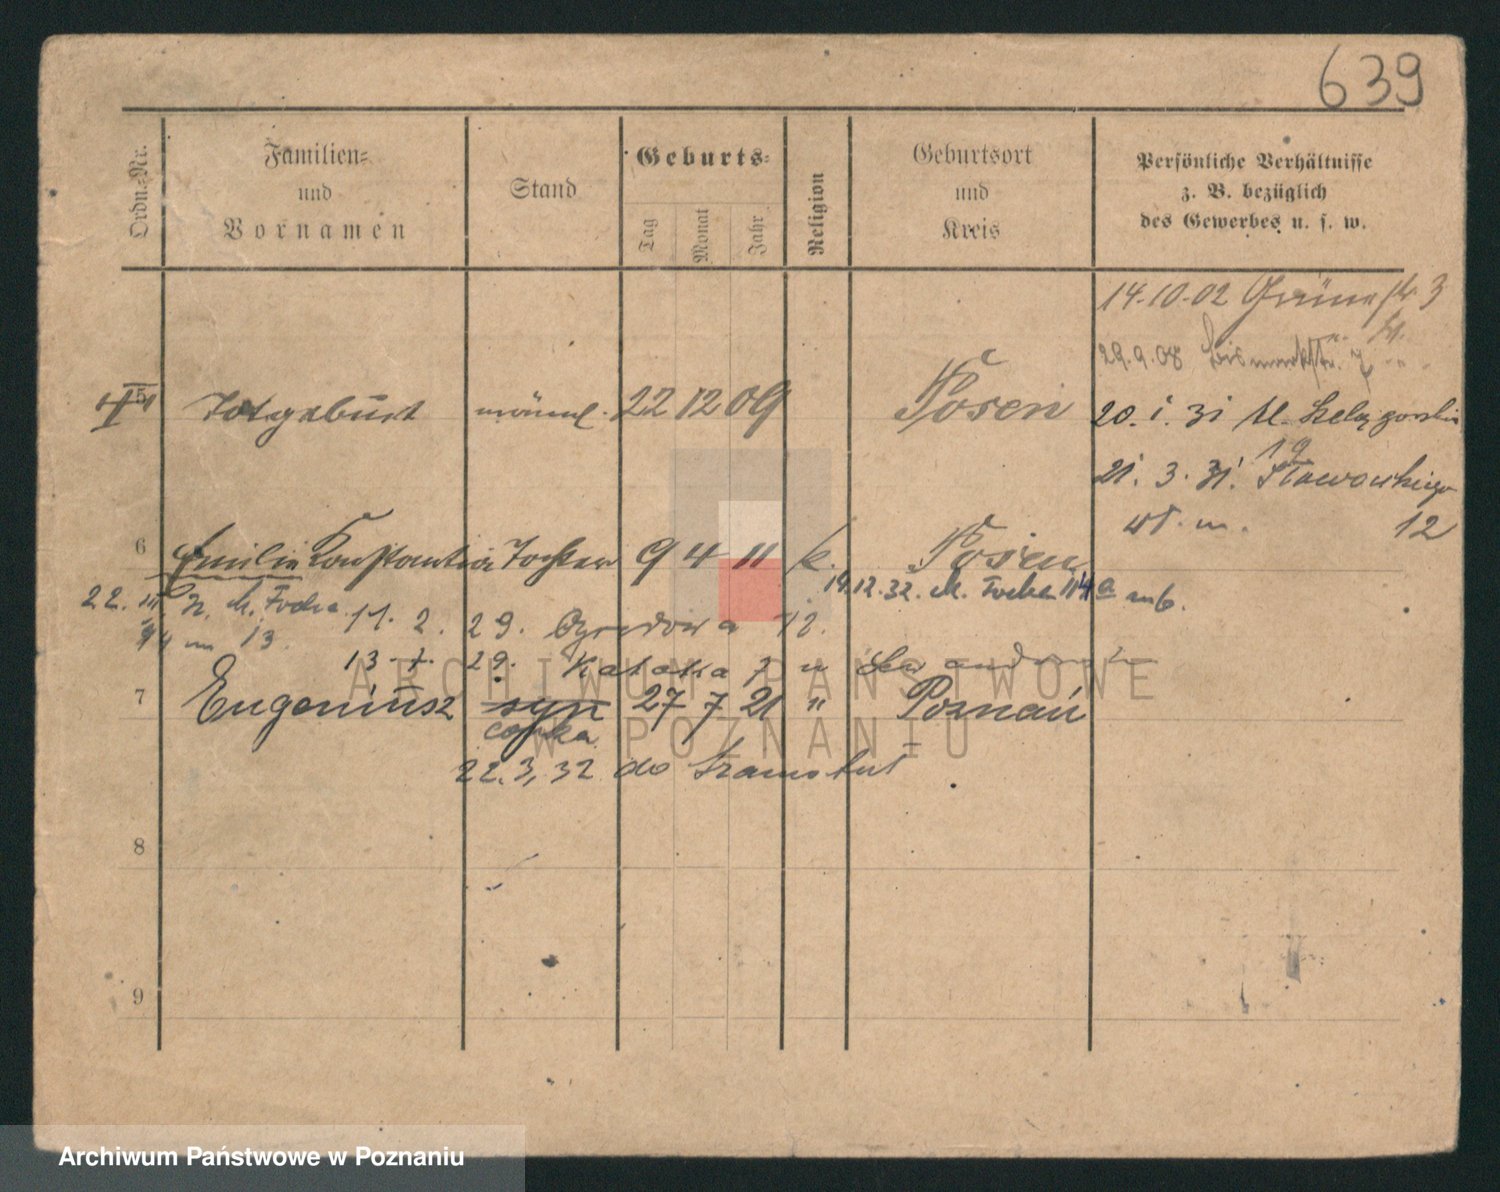 639
Ordn.-Nr.
Familien-
und
Vornamen
Stand
Geburts-
Tag
Monat
Jahr
Religion
Geburtsort
und
Kreis
Persönliche Verhältnisse
z. B. bezüglich
des Gewerbes u. s. w.
14.10.02 Grünestr 3
29.9.08 Bismarckstr. 7
5 Totgeburt männl. 22 12 09 Posen
20. 1. 31 M.
19
21. 3. 31. Słowackiego
m. 12
6 Emilie Konstantia Tochter 9 4 11 k. Posen
14.12.32. M. Focha 114 a m 6.
22. III M. Focha 11. 2. 29. Ogrodowa 12.
m 13.
13. 29. 7
7 Eugeniusz syn 27 7 21 " Poznań
córka
22.3,32 do
8
9
ARCHIWUM PAŃSTWOWE
W POZNANIU
Archiwum Państwowe w Poznaniu